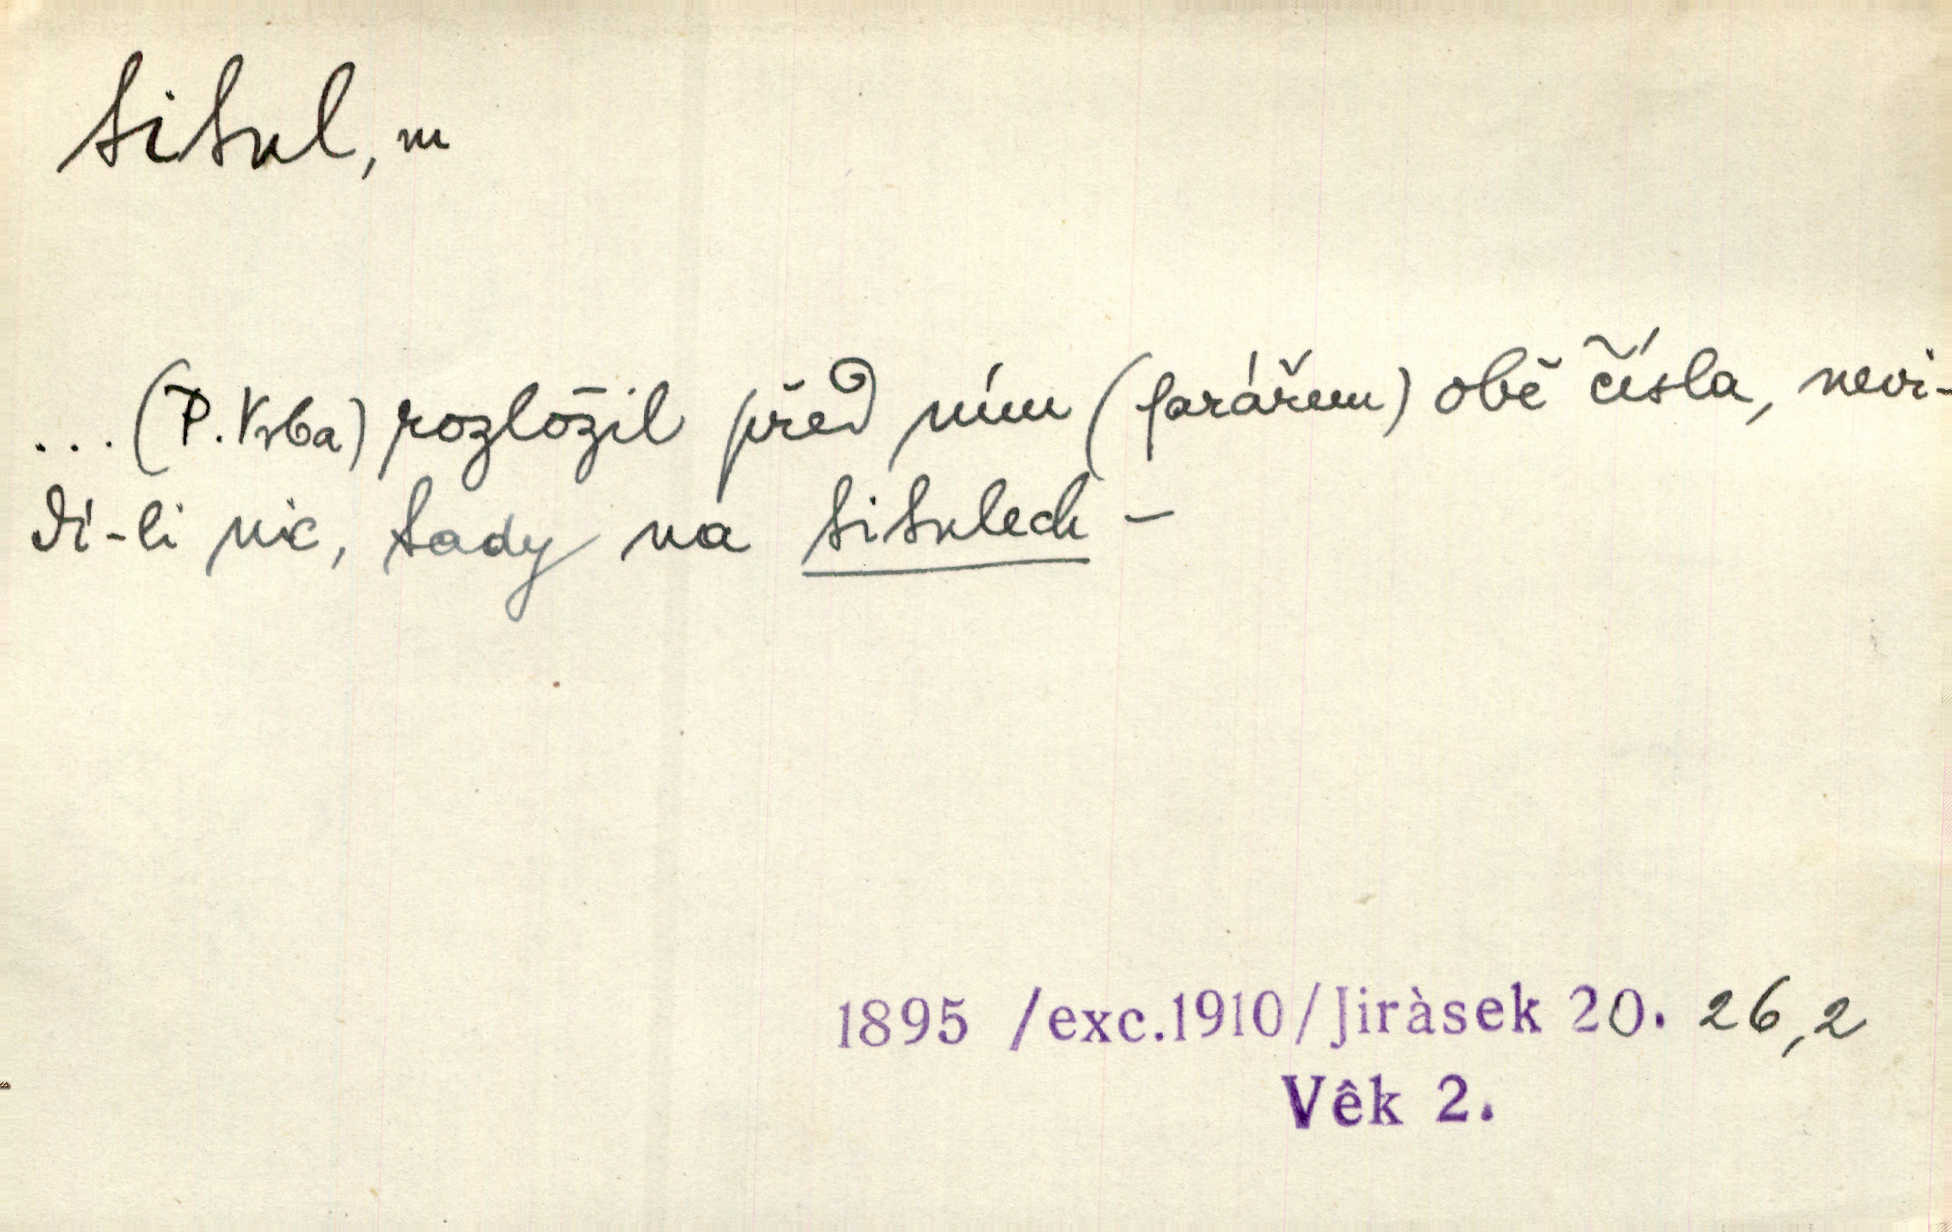 titul, m
... (P. Vrba) rozložil před ním (farářem) obě čísla, nevi-
dí-li nic, tady na titulech –
1895 /exc.1910/Jiràsek 20. 26,2
Vêk 2.